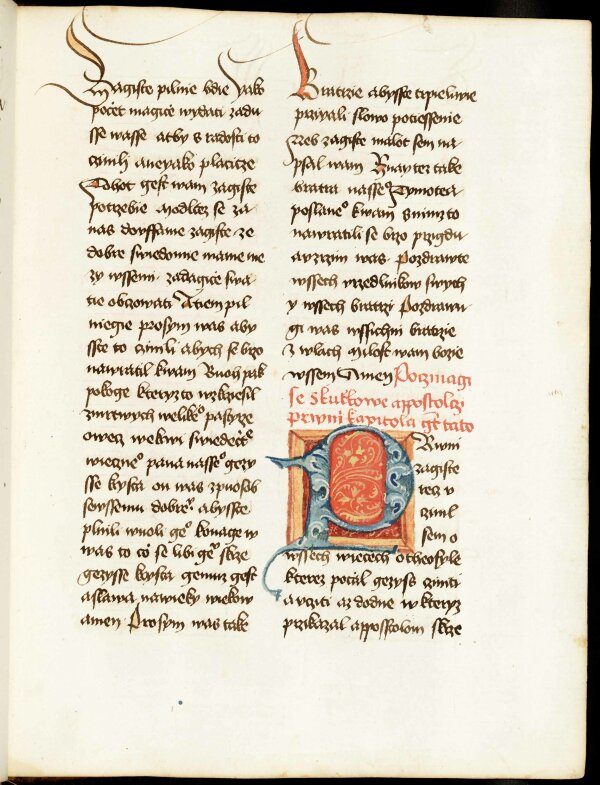 zagiste pilnie bdie yako
počet magice wydati zadu
sse wasse atby s radosti to
czinili aneyako placicze
Tobot gest wam zagiste
potrzebie modlte se za
nas dowffame zagiste ze
dobre swiedomie mame me
zy wssemi zadagice swa
tie obczowati A tiem pil
niegie prosym was aby
sste to czinili abych se brzo
nawratil kwam Buoh pak
pokoge kteryz to wzkriesil
zmrtwych welikeº pastyrze
owecz wekrwi swiedectº
wiecneº pana nasseº gezy
sse krysta on was zpuosob
sewssemu dobreº abysste
plnili wuoli geº konage w
was to což se libi geº skrze
gezysse krysta gemuz gest
a slawa nawieky wiekow
amen Prosym was take
Bratrzie abysste trpieliwie
prziyali slowo potiessenie
Neb zagiste malot sem na
psal wam Znayte z take
bratra nasseº Tymotea
poslaneº kwam s nimz to
nawratili se brzo przigdu
a vzrzim was Pozdrawte
wssech vrzedlnikow swych
y wssech bratrzi Pozdrawu
gi was wssichni bratrzie
z wlach milost wam bozie
wssem Amen Poczinagi
se Skutkowe appostolczi
prwni kapitola gt tato
PRwni
zagiste
rzecz v
czinil
sem o
wssech wiecech o theofyle
kterez počal gezyss cziniti
a vcziti az do dne w kteryz
przikazal appostolom skrze